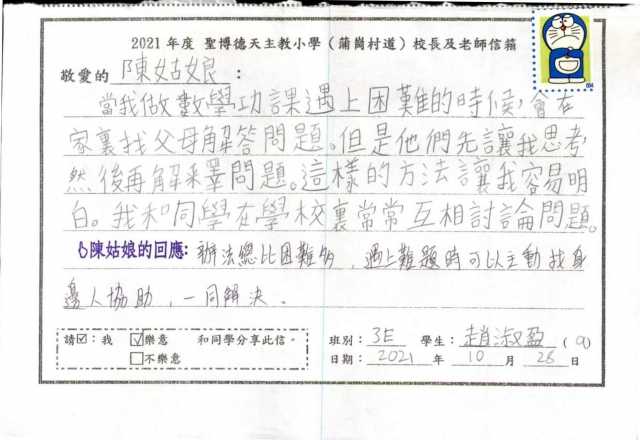 2021年度 聖博德天主教小學（蒲崗村道）校長及老師信箱
敬愛的 陳姑娘 ：
當我做數學功課遇上困難的時候,會在
家裏找父母解答問題。但是他們先讓我思考,
然後再解釋問題。這樣的方法讓我容易明
白。我和同學在學校裏常常互相討論問題。
陳姑娘的回應: 辦法總比困難多，遇上難題時可以主動找身
邊人協助，一同解決。
請☑：我 ☑樂意 和同學分享此信。 班別： 3E 學生： 趙淑盈 (9)
□不樂意 日期： 2021 年 10 月 28 日